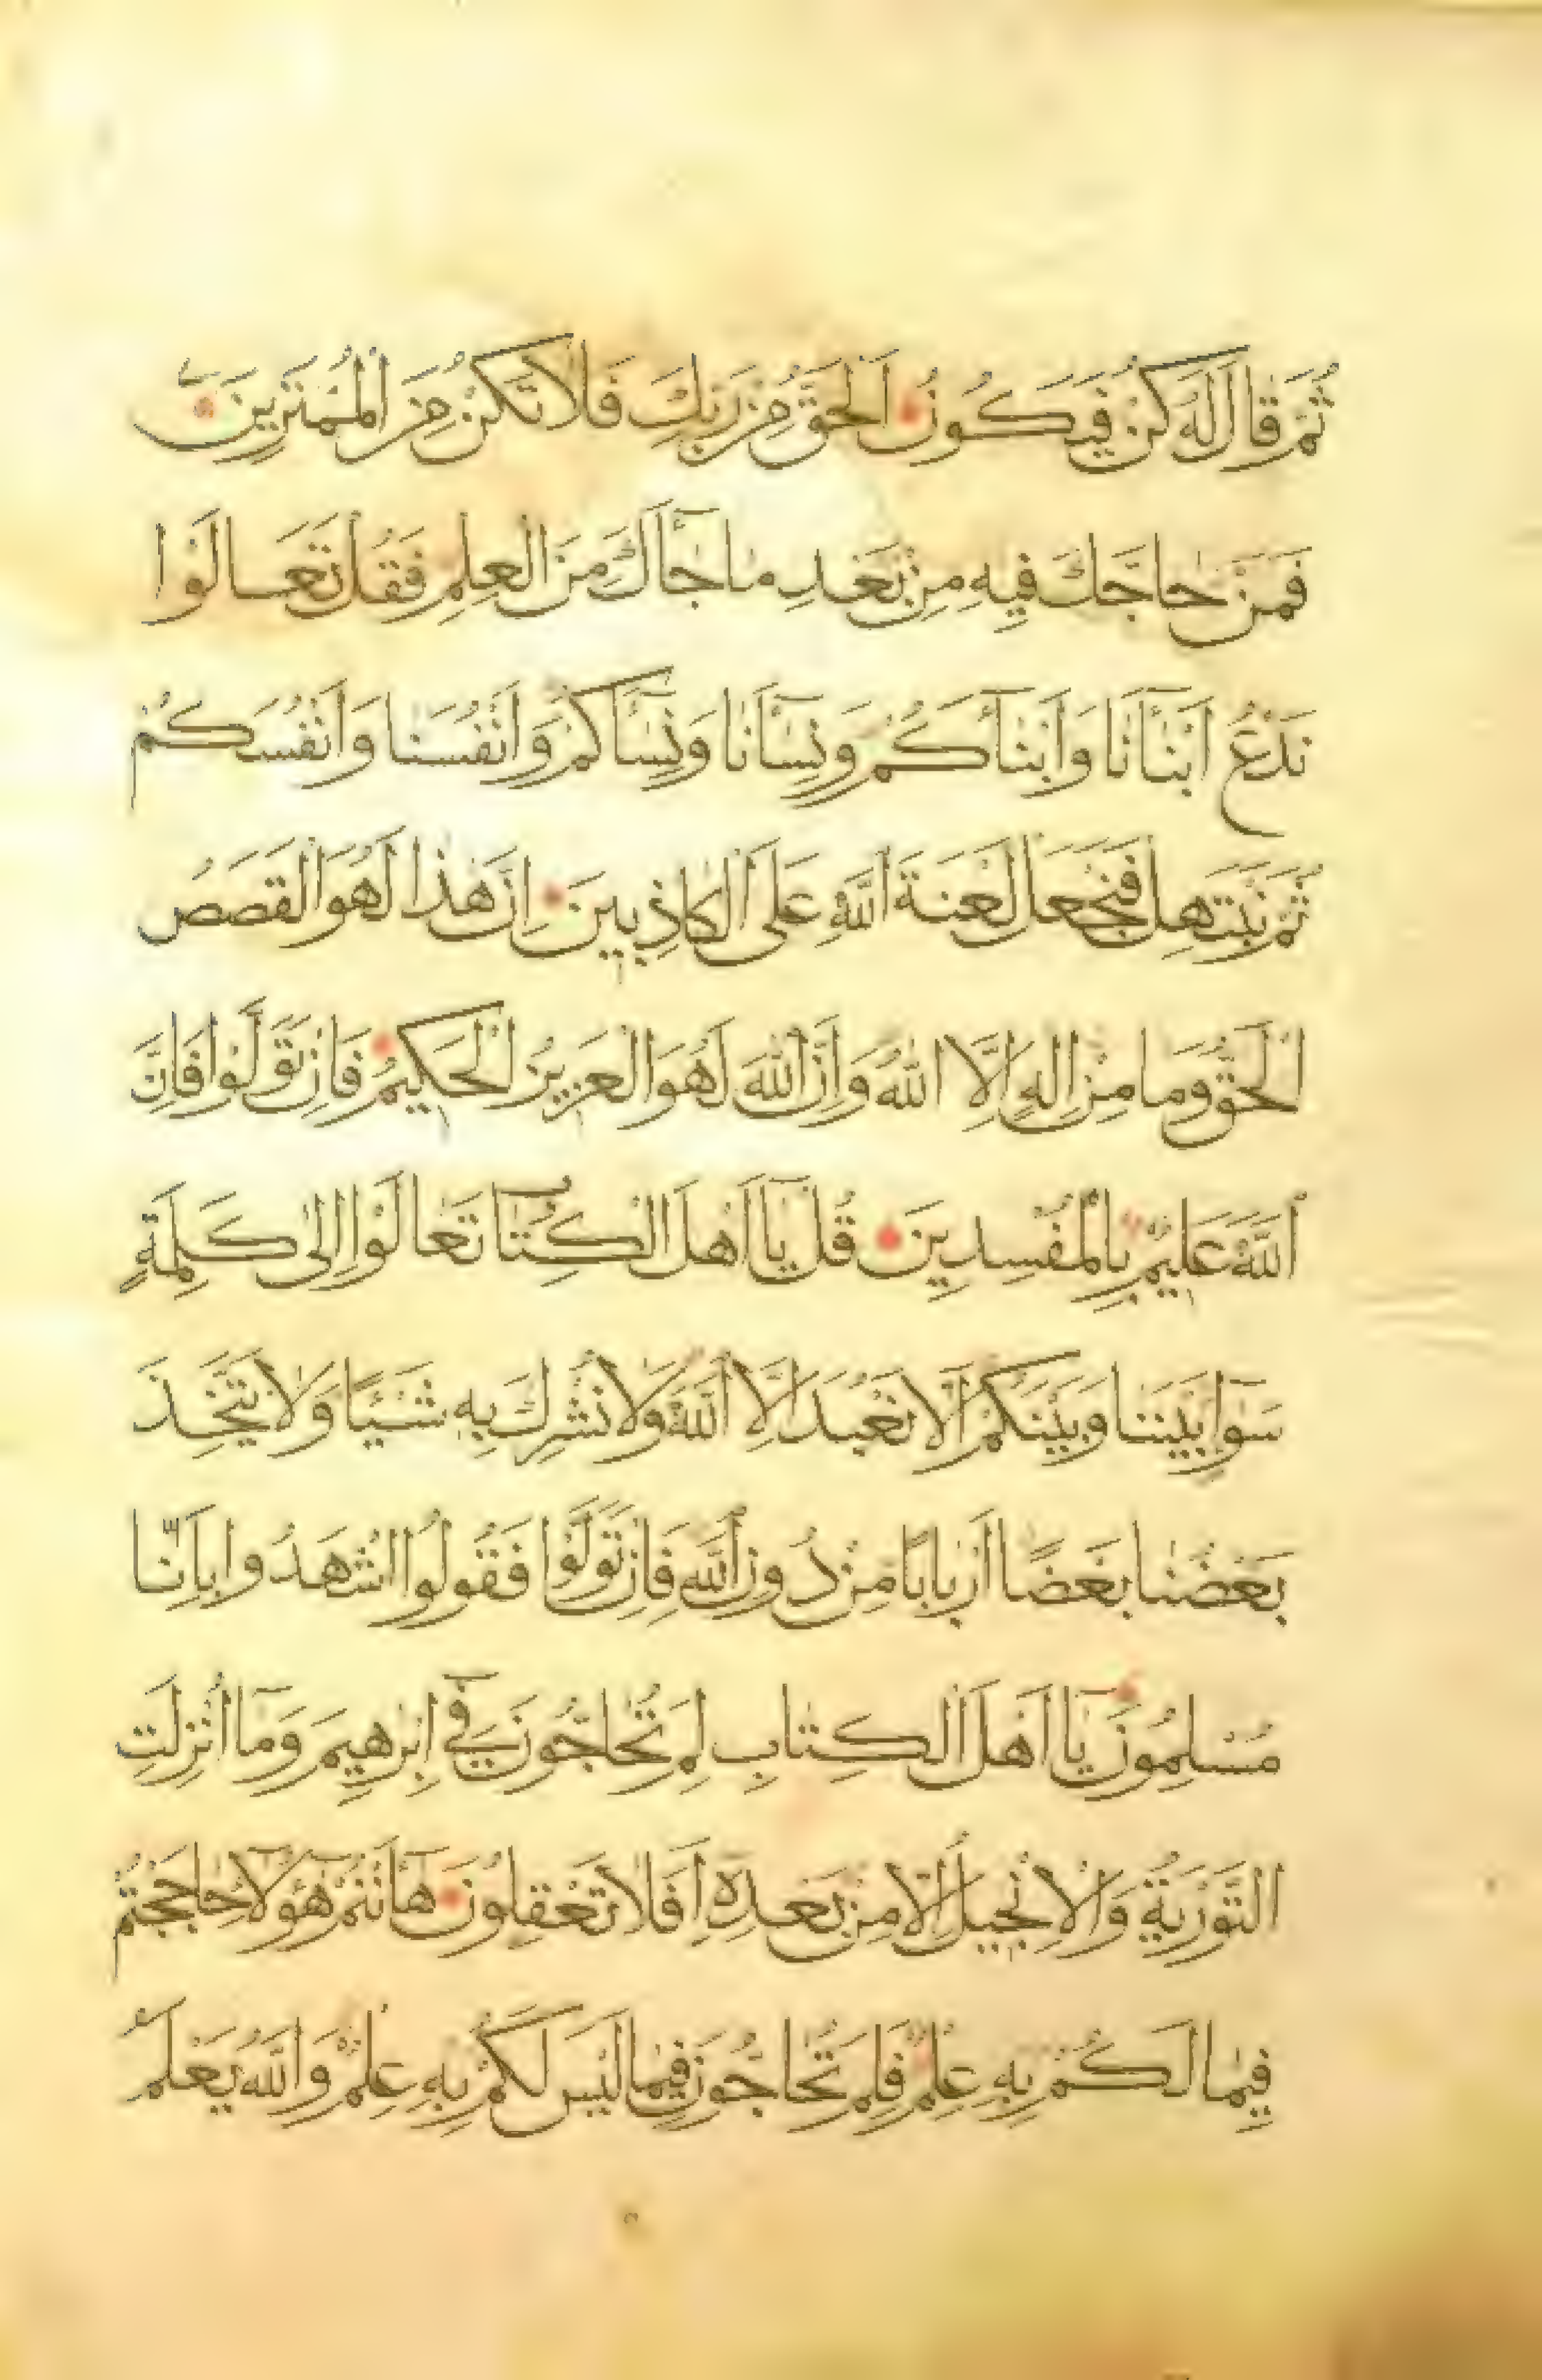 ثُمَّ قَالَ لَهُ كُنْ فَيَكُونُ اَلْحَقُّ مِنْ رَبِّكَ فَلَا تَكُنْ مِنَ الْمُمْتَرِينَ
فَمَنْ حَاجَّكَ فِيهِ مِنْ بَعْدِ مَا جَآَٔكَ مِنَ الْعِلْمِ فَقُلْ تَعَالَوْا
نَدْعُ اَبْنَآَٔنَا وَاَبْنَآَٔكُمْ وَنِسَآَٔنَا وَنِسَآَٔكُمْ وَاَنْفُسَنَا وَاَنْفُسَكُمْ
ثُمَّ نَبْتَهِلْ فَنَجْعَلْ لَعْنَةَ اللّٰهِ عَلَى الْكَاذِبِينَ اِنَّ هٰذَا لَهُوَ الْقَصَصُ
الْحَقُّ وَمَا مِنْ اِلٰهٍ اِلَّا اللّٰهُ وَاِنَّ اللّٰهَ لَهُوَ الْعَزِيزُ الْحَكِيمُ فَاِنْ تَوَلَّوْا فَاِنَّ
اللّٰهَ عَلِيمٌ بِالْمُفْسِدِينَ قُلْ يَآ اَهْلَ الْكِتَابِ تَعَالَوْا اِلٰى كَلِمَةٍ
سَوَآءٍ بَيْنَنَا وَبَيْنَكُمْ اَلَّا نَعْبُدَ اِلَّا اللّٰهَ وَلَا نُشْرِكَ بِهِ شَيْئًا وَلَا يَتَّخِذَ
بَعْضُنَا بَعْضًا اَرْبَابًا مِنْ دُونِ اللّٰهِ فَاِنْ تَوَلَّوْا فَقُولُوا اشْهَدُوا بِاَنَّا
مُسْلِمُونَ يَآ اَهْلَ الْكِتَابِ لِمَ تُحَاجُّونَ فِيٓ اِبْرٰهِيمَ وَمَآ اُنْزِلَتِ
التَّوْرٰيةُ وَالْاِنْجِيلُ اِلَّا مِنْ بَعْدِهِٓ اَفَلَا تَعْقِلُونَ هَآ اَنْتُمْ هٰٓؤُلَآءِ حَاجَجْتُمْ
فِيمَا لَكُمْ بِهِ عِلْمٌ فَلِمَ تُحَاجُّونَ فِيمَا لَيْسَ لَكُمْ بِهِ عِلْمٌ وَاللّٰهُ يَعْلَمُ